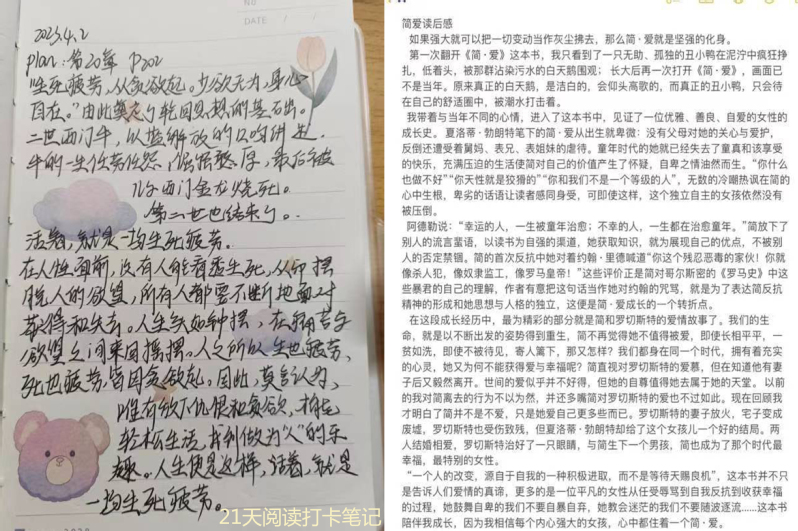 NO
DATE
2023.4.2
plan：第20章 P202
"生死疲劳，从贪欲起。少欲无为，身心
自在。"由此奠定了轮回思想的基石出。
二世西门牛，以蓝解放的口吻讲述
牛的一生任劳任怨，倔强憨厚，最后被
儿子西门金龙烧死。
第二世也结束了。
活着，就是一场生死疲劳。
在人性面前，没有人能看透生死，从而摆
脱人的欲望，所有人都要不断地面对
获得和失去。人生先如钟摆，在痛苦与
欲望之间来回摇摆。人之所以生也疲劳，
死也疲劳，皆因贪欲起。因此，莫言认为，
唯有放下仇恨和贪欲，
轻松生活，我到做为"人"的乐
趣。人生便是这样，活着，就是
一场生死疲劳。
21天阅读打卡笔记
简爱读后感
如果强大就可以把一切变动当作灰尘拂去，那么简·爱就是坚强的化身。
第一次翻开《简·爱》这本书，我只看到了一只无助、孤独的丑小鸭在泥泞中疯狂挣
扎，低着头，被那群沾染污水的白天鹅围观； 长大后再一次打开《简·爱》，画面已
不是当年。原来真正的白天鹅，是洁白的，会仰头高歌的，而真正的丑小鸭，只会待
在自己的舒适圈中，被潮水打击着。
我带着与当年不同的心情，进入了这本书中，见证了一位优雅、善良、自爱的女性的
成长史。 夏洛蒂·勃朗特笔下的简·爱从出生就卑微：没有父母对她的关心与爱护，
反倒还遭受着舅妈、表兄、表姐妹的虐待。童年时代的她就已经失去了童真和该享受
的快乐，充满压迫的生活使简对自己的价值产生了怀疑，自卑之情油然而生。“你什么
也做不好”“你天性就是狡猾的”“你和我们不是一个等级的人”，无数的冷嘲热讽在简的
心中生根，卑劣的话语让读者感同身受，可即使这样，这个独立自主的女孩依然没有
被压倒。
阿德勒说：“幸运的人，一生被童年治愈；不幸的人，一生都在治愈童年。”简放下了
别人的流言蜚语，以读书为自强的渠道，她获取知识，就为展现自己的优点，不被别
人的否定禁锢。简的首次反抗中她对着约翰·里德喊道“你这个残忍恶毒的家伙！你就
像杀人犯，像奴隶监工，像罗马皇帝！”这些评价正是简对哥尔斯密的《罗马史》中这
些暴君的自己的理解，作者有意把这句话当作她对约翰的咒骂，就是为了表达简反抗
精神的形成和她思想与人格的独立，这便是简·爱成长的一个转折点。
在这段成长经历中，最为精彩的部分就是简和罗切斯特的爱情故事了。我们的生
命，就是以不断出发的姿势得到重生，简不再觉得她不值得被爱，即使长相平平，一
贫如洗，即使不被待见，寄人篱下，那又怎样？我们都身在同一个时代，拥有着充实
的心灵，她又为何不能获得爱与幸福呢？简直视对罗切斯特的爱慕，但在知道他有妻
子后又毅然离开。世间的爱似乎并不好得，但她的自尊值得她去属于她的天堂。 以前
的我对简离去的行为不以为然，并还多嘴简对罗切斯特的爱也不过如此。现在回顾我
才明白了简并不是不爱，只是她爱自己更多些而已。罗切斯特的妻子放火，宅子变成
废墟，罗切斯特也受伤致残，但夏洛蒂·勃朗特却给了这个女孩儿一个好的结局。两
人结婚相爱，罗切斯特治好了一只眼睛，与简生下一个男孩，简也成为了那个时代最
幸福，最特别的女性。
“一个人的改变，源于自我的一种积极进取，而不是等待天赐良机”，这本书并不只
是告诉人们爱情的真谛，更多的是一位平凡的女性从任受辱骂到自我反抗到收获幸福
的过程，她鼓舞自卑的我们不要自暴自弃，她教会迷茫的我们不要随波逐流......这本书
陪伴我成长，因为我相信每个内心强大的女孩，心中都住着一个简·爱。